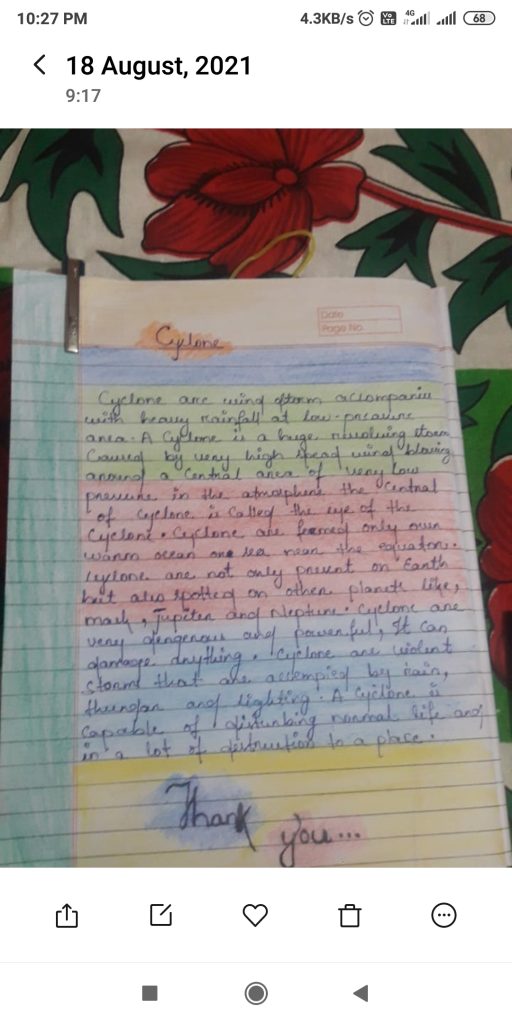 10:27 PM
4.3KB/s
Vo LTE
4G
68
18 August, 2021
9:17
Date
Page No.
Cyclone
Cyclone are wind storm accompanie
with heavy rainfall at low-pressure
area. A Cyclone is a huge, revolving storm
Caused by very high spead wind blowing
around a Central area of very low
pressure in the atmosphere the central
of cyclone is called the eye of the
Cyclone. Cyclone are formed only over
warm ocean sea near the equator.
Cyclone are not only present on Earth
but also spotted on other planets like,
mars, Jupiter and Neptune. Cyclone are
very dengerous and powerful, It can
damage anything. Cyclone are violent
storm that are accompied by rain,
thundar and lighting. A Cyclone is
capable of disturbing normal life and
in a lot of destruction to a place.
Thank
you...